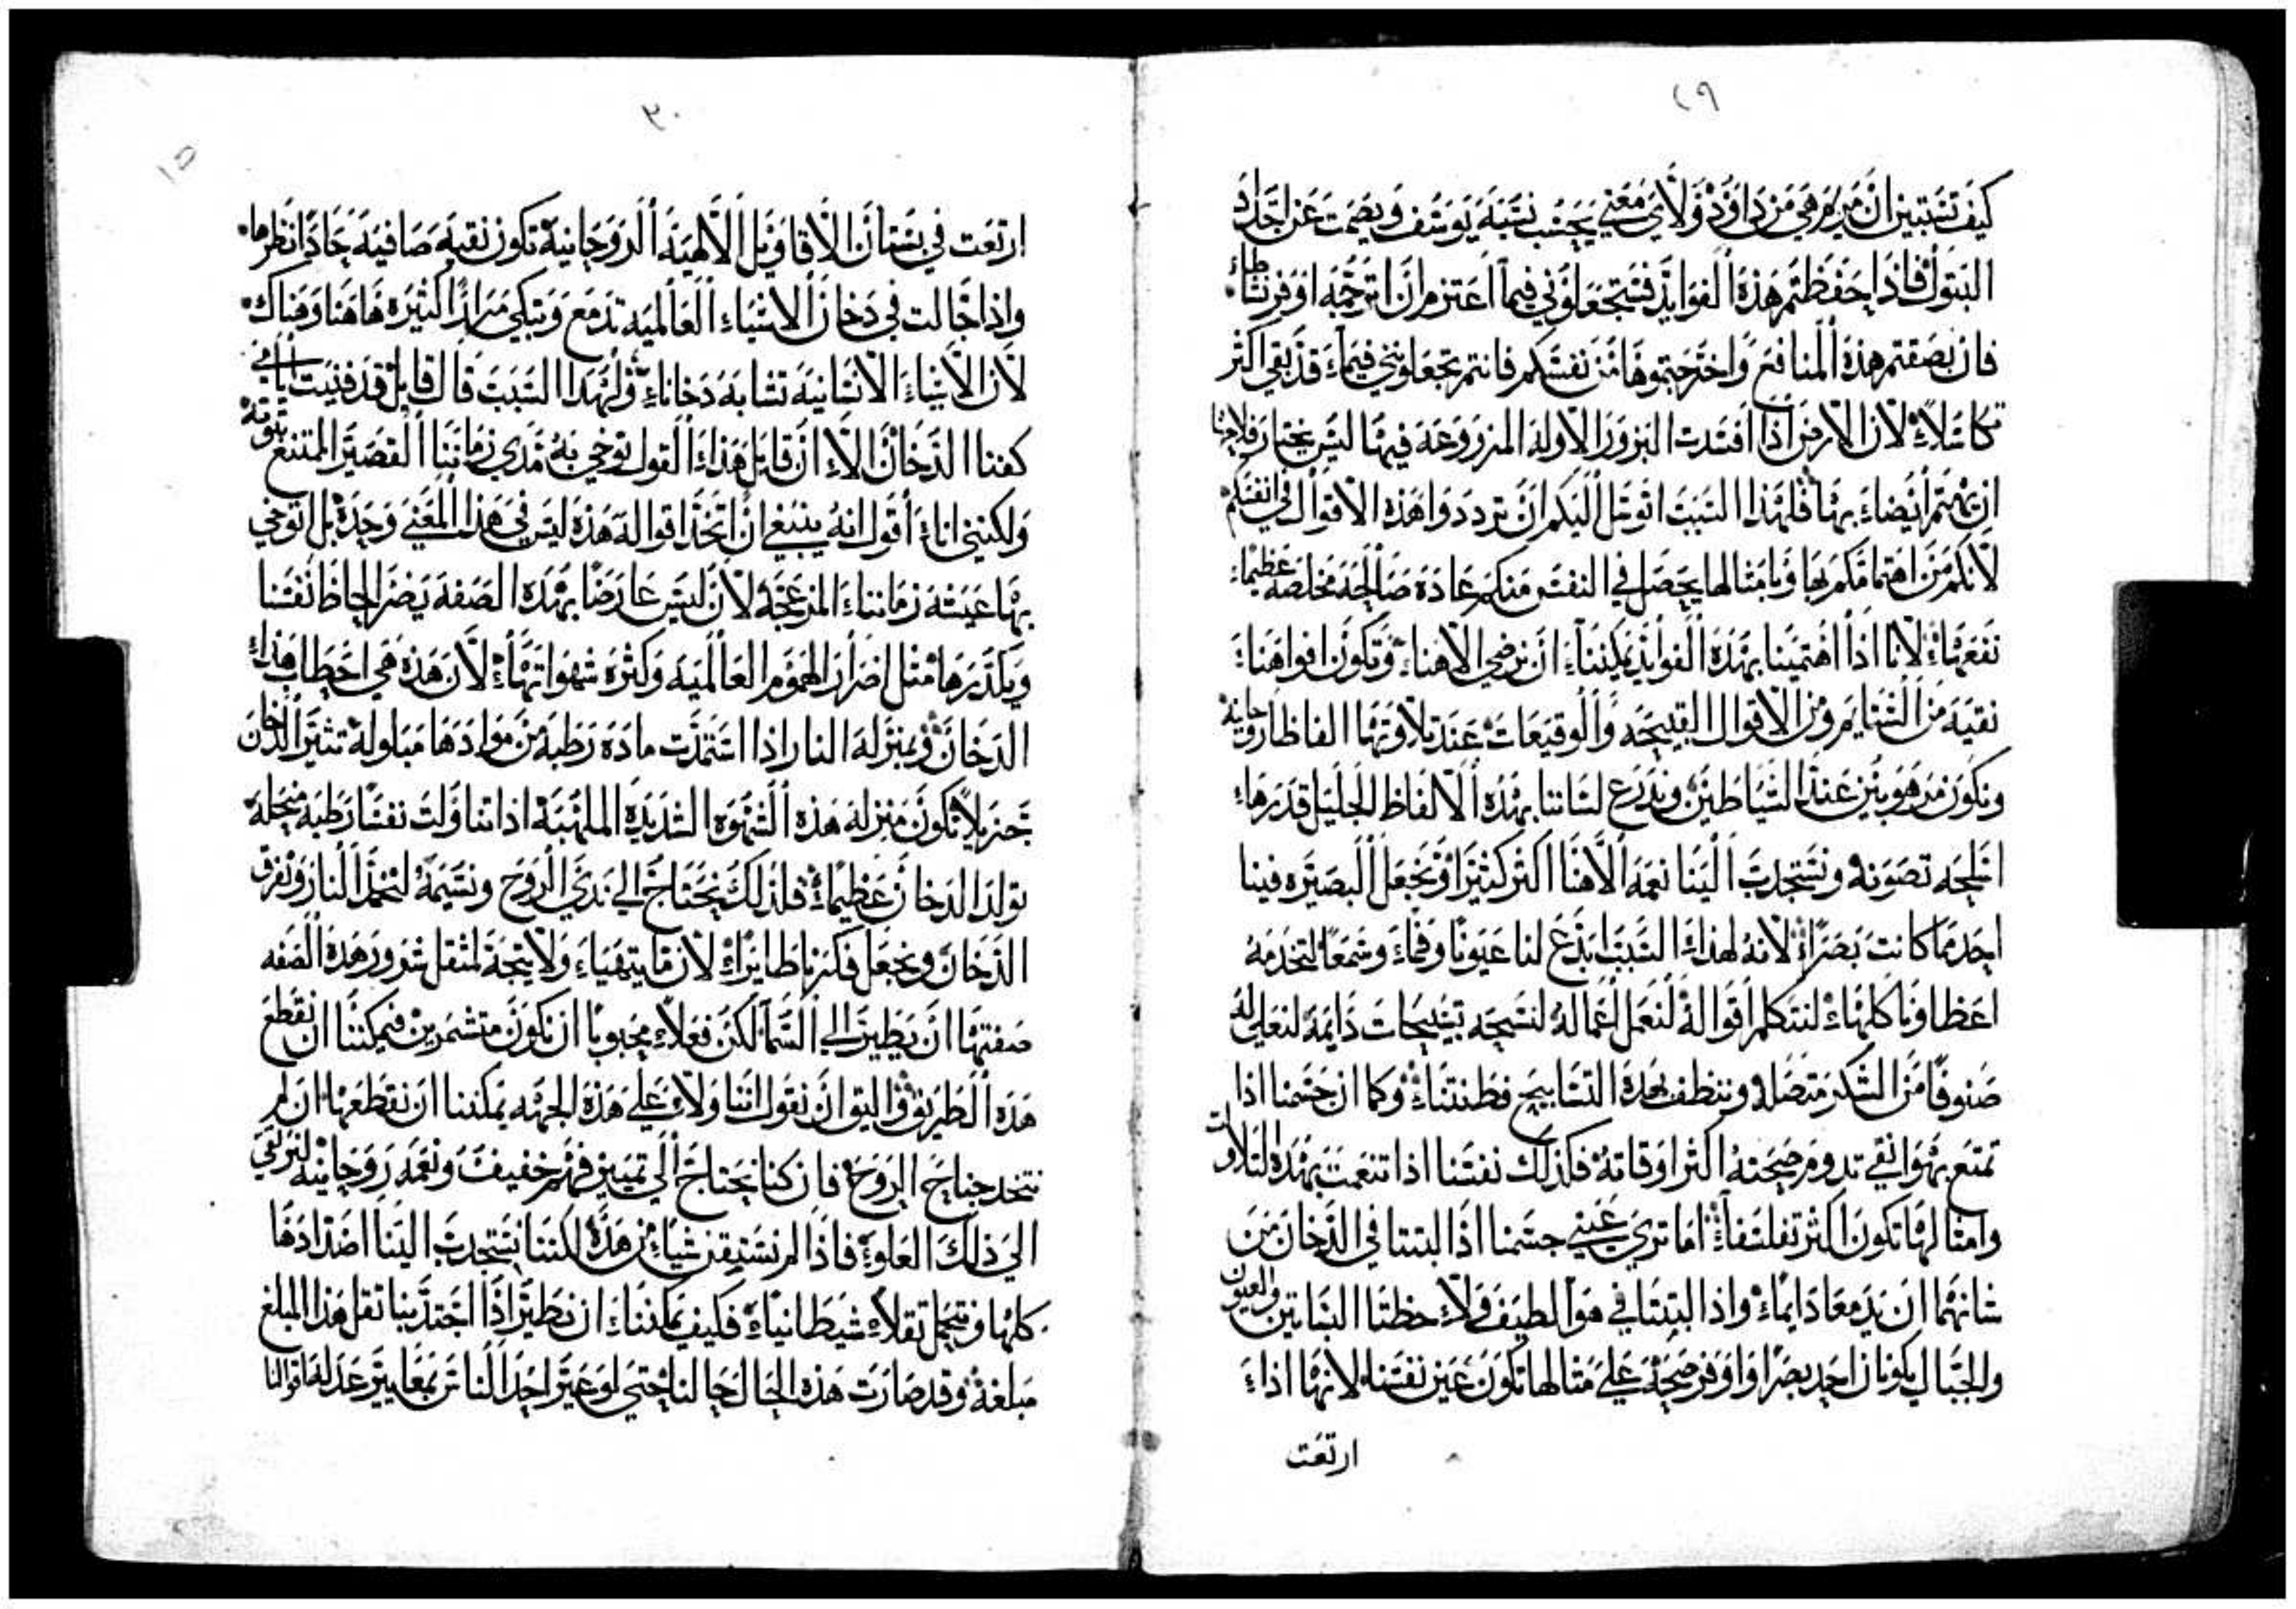 ٢٩
كيف تستبين ان مريم هي من داوود ولاي معني يحسب نسبة يوسف ويصمت عن اجداد
البتول فاذا حفظتم هذه الفوايد فستجعلوني فيما اعتزم ان اترجمه اوفر نشاطاء
فان بصقتم هذه المنافع واخترجتموها من نفسكم فانتم تجعلونني فيماء قد بقي اكثر
تكاسلاء لان الارض اذا افسدت البزور الاولة المزروعة فيها ليس يختار فلاحها
ان يهتم ايضاء بها فلهذا السبب اتوسل اليكم ان ترددوا هذه الاقوال في انفسكم
لانكم من اهتمامكم بها وبامثالها يحصل في النفس منكم عادة صالحة مخلصة عظيماء
نفعهاء لانا اذا اهتمينا بهذه الفوايد يمكنناء ان نرضي الاهناء وتكون افواهناء
نقية من الشتايم ومن الاقوال القبيحه والوقيعات عند تلاوتها الفاظا روحانية
ونكون مرهوبين عند الشياطين وندرع لساننا بهذه الالفاظ الجليل قدرهاء
اسلحه تصونه ونستجدب الينا نعمة الاهنا اكثر كثيرا ونجعل البصيره فينا
احد مما كانت بصراء لانه لهذاء السبب ابدع لنا عيونا وفماء وسمعا لتخدمه
اعظاونا كلهاء لنتكلم اقواله لنعمل اعماله لنسبحه تسبيحات دايمه لنعلي له
صنوفا من الشكر متصله وننظف بهذه التسابيح فطنتناء وكما ان جسمنا اذا
تمتع بهوا نقي تدوم صحته اكثر اوقاته فكذلك نفسنا اذا تنعمت بهذه التلاوات
وامثالها تكون اكثر تفلسفاء اما تري عيني جسمنا اذا لبتتا في الدخان من
شانهما ان يدمعا دايماء واذا لبتتا في هوا لطيف ولاحظتا البساتين والعيون
والجبال يكونان احد بصرا واوفر صحه علي مثالها تكون عين نفسنا لانها اذاء
ارتعت
٣٠
١٥
ارتعت في بستان الاقاويل الالهيه الروحانية تكون نقيه صافيه حادا نظرها
واذا جالت في دخان الاشياء العالميه تدمع وتبكي مرارا كثيره هاهنا وهناك
لان الاشياء الانسانيه تشابه دخاناء ولهذا السبب قال قايل قد فنيت ايامي
كفنا الدخان الا ان قايل هذاء القول توخي به مدي زماننا القصير الممتنع ثبوته
ولكنني اناء اقول انه ينبغي ان اتخذ اقواله هذه ليس في هذا المعني وحده بل اتوخي
بها عيشه زمانناء المزعجه لان ليس عارضا بهذه الصفه يضر الحاظ نفسنا
ويكدرها مثل اضرار الهموم العالميه وكثره شهواتهاء لان هذه هي احطاب هذاء
الدخان وبمنزله النار اذا استمدت ماده رطبه من موادها مبلوله تثير الدخان
جزيلا تكون منزله هذه الشهوه الشديده الملهبه اذا تناولت نفسا رطبه منحله
تولد الدخان عظيماء فلذلك نحتاج الي ندي الروح ونسيمه لتخمد النار وتفرق
الدخان ويجعل فكرنا طايراء لان ما يتهياء ولا يتجه لمثقل بشرور هذه الصفه
صفتها ان يطير الي السما لكن فعلاء محبوبا ان نكون متشمرين فيمكننا ان نقطع
هذه الطريق واليق ان نقول اننا ولا علي هذه الجهه يمكننا ان نقطعها ان لم
نتخد جناح الروح فان كنا نحتاج الي تمييز فهم خفيف ونعمه روحانيه لنرتقي
الي ذلك العلو فاذا لم نستيقن شياء من هذه لكننا نستجدب الينا اضدادها
كلها ونتحمل ثقلاء شيطانياء فكيف يمكنناء ان نطير اذا اجتدبنا ثقل هذا المبلغ
مبلغه وقد صارت هذه الحال حالنا حتي لو عير احد الناس بمعايير عدله اقوالنا